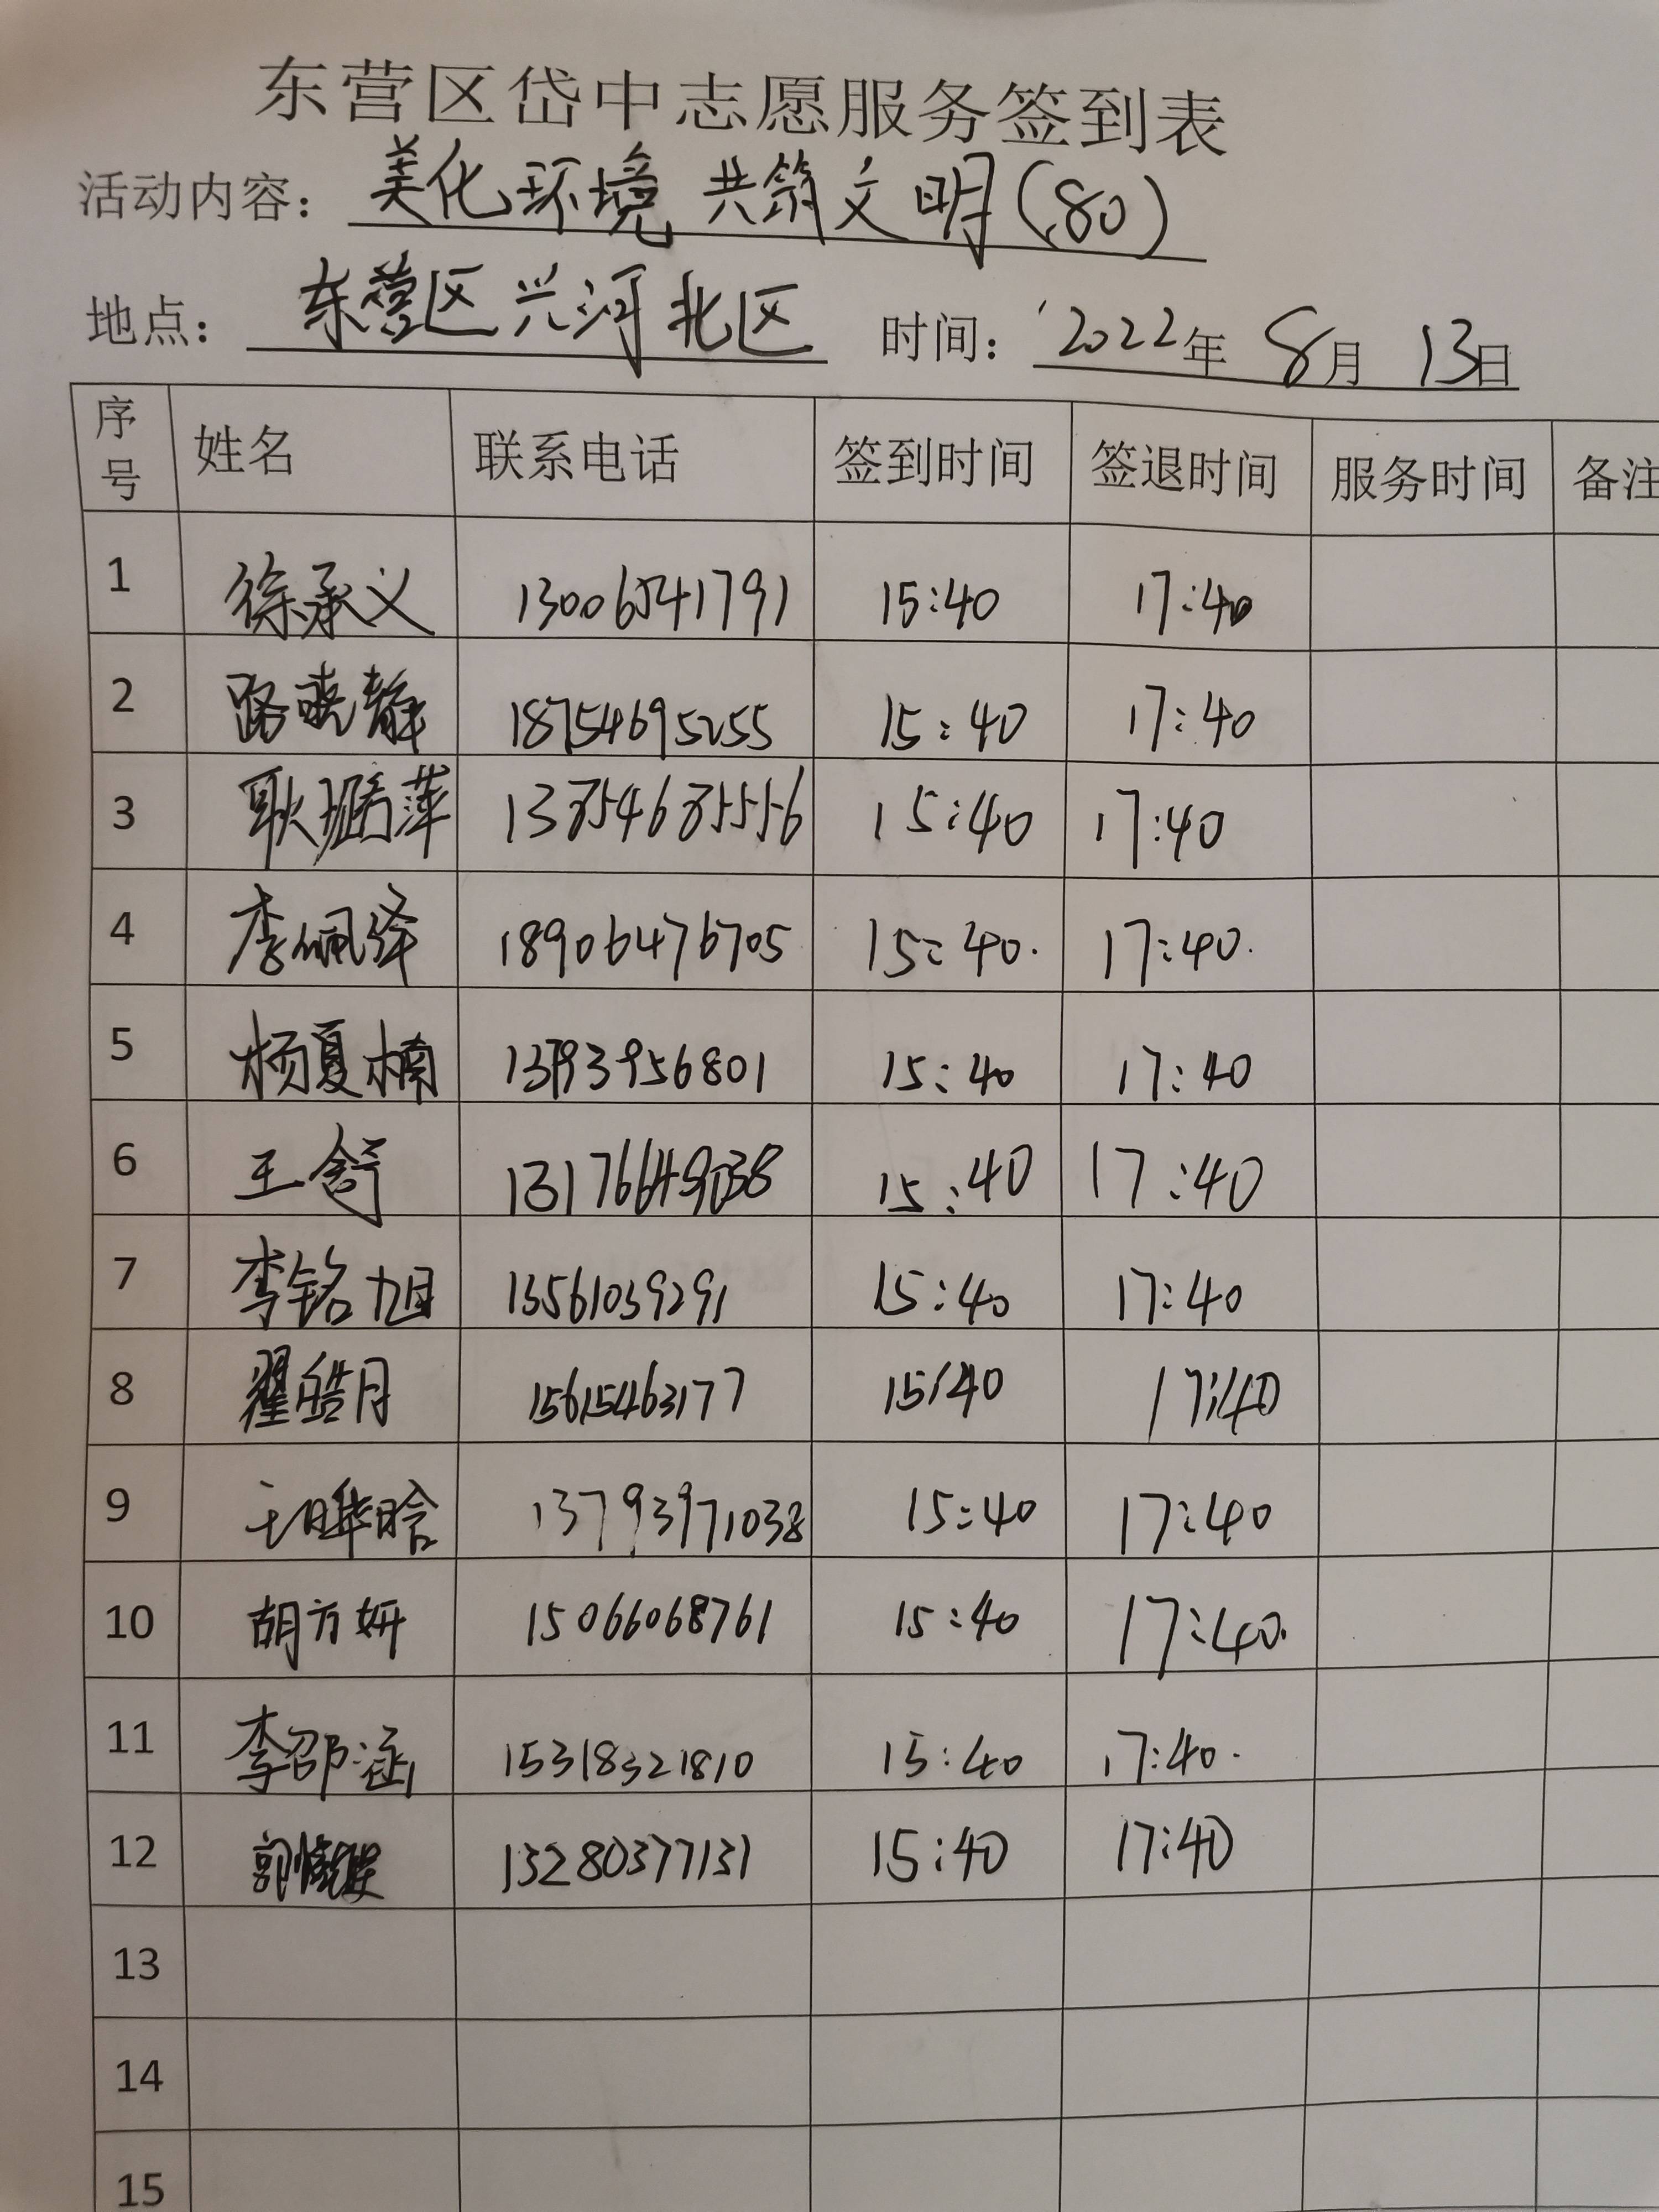 东营区岱中志愿服务签到表
活动内容：美化环境 共筑文明（80）
地点：东营区兴河北区 时间：2022年 8月 13日
序号 姓名 联系电话 签到时间 签退时间 服务时间 备注
1 徐承义 13006541791 15:40 17:40
2 路晓静 18754695255 15:40 17:40
3 耿璐萍 15:40 17:40
4 李佩泽 18906476705 15:40. 17:40.
5 杨夏楠 13793956801 15:40 17:40
6 王舒 15:40 17:40
7 李铭旭 13561039291 15:40 17:40
8 翟皓月 15615463177 15:40 17:40
9 王晔晗 13793971038 15:40 17:40
10 胡方妍 15066068761 15:40 17:40.
11 李邵涵 15318321810 15:40 17:40.
12 郭 13280377131 15:40 17:40
13
14
15